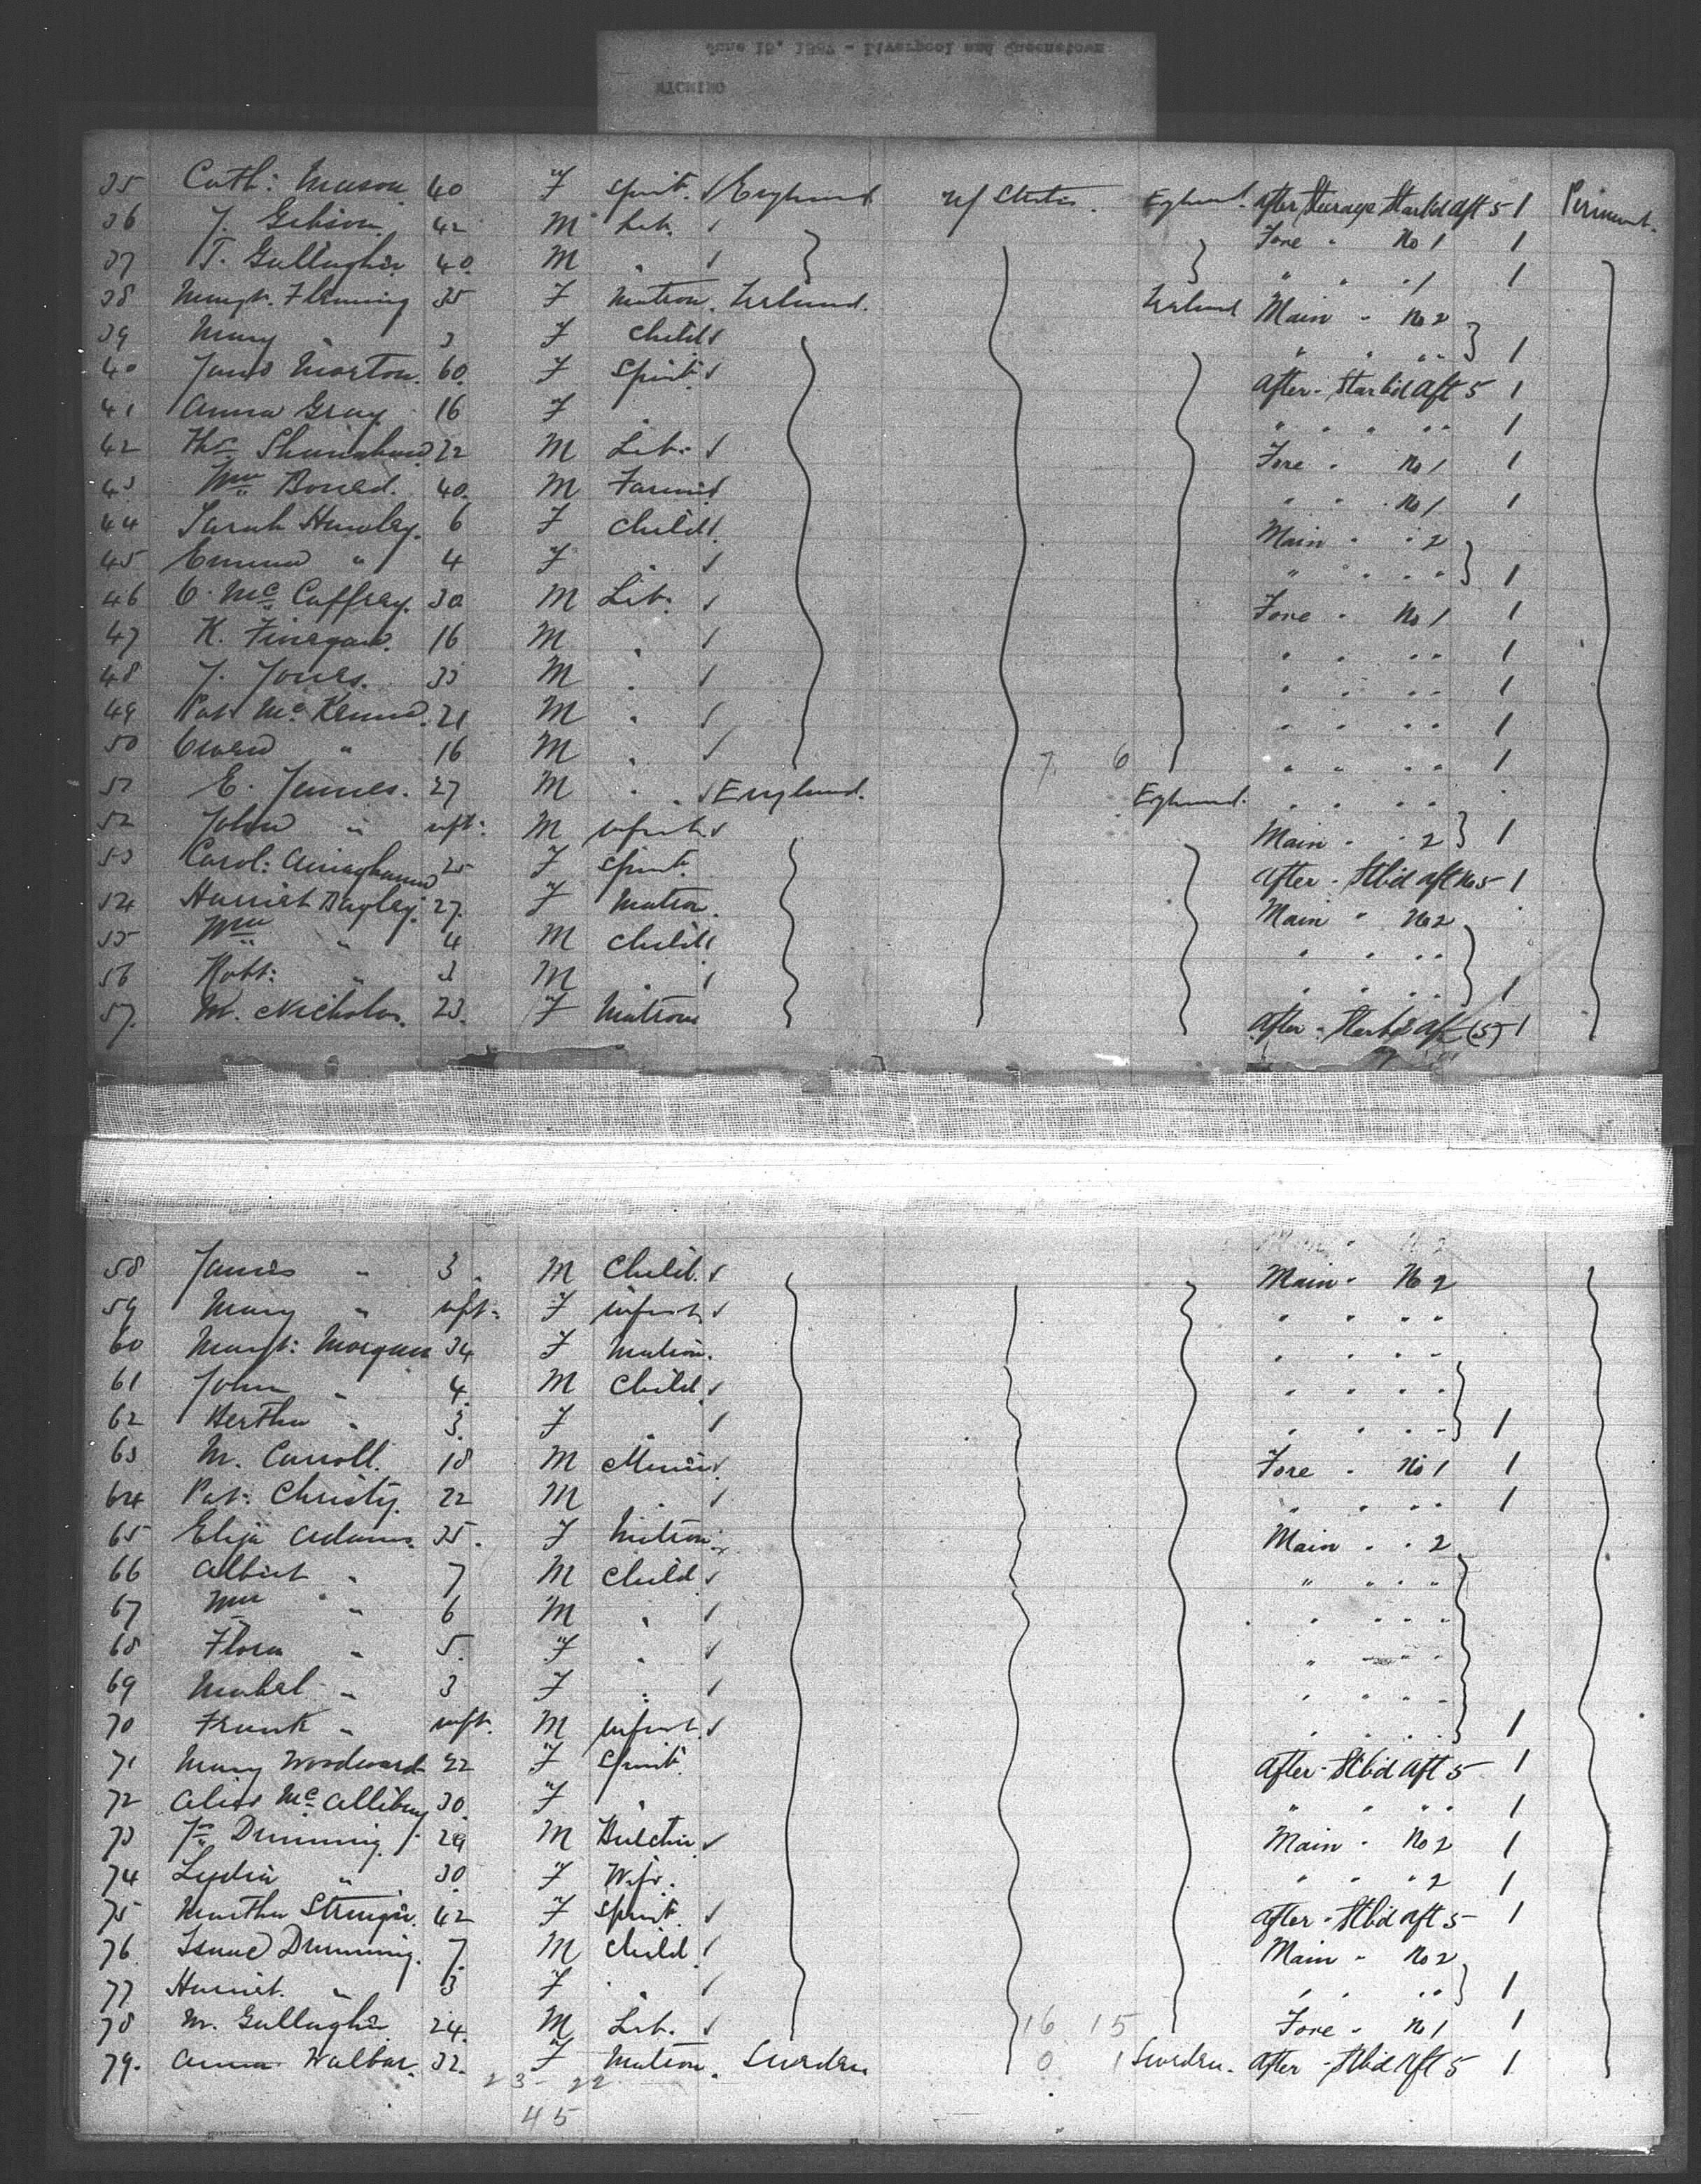 June 15, 1887 - Liverpool and Queenstown
WYOMING
35 Cath: Mason 40 F Spinst. England U/ States. England. After Steerage Starbd aft 5 1 Perment.
36 J. Gibson 42 M Lab. Fore " No 1 1
37 T. Gallagher 40 M " " " " 1 1
38 Margt. Fleming 35 F Matron. Ireland. Ireland Main " No 2
39 Mary " 3 F Child " " " " 1
40 Jane Morton. 60 F Spinst. After - Starbd aft 5 1
41 Anna Gray 16 F " " " " " " 1
42 Ths. Shanahan 22 M Lab: Fore " No 1 1
43 Wm 40 M Farmer " " No 1 1
44 Sarah Hawley. 6 F Child Main " " 2
45 Emma " 4 F " " " " " 1
46 O. McCaffrey. 30 M Lab. Fore " No 1 1
47 K. Finegan. 16 M " " " " " 1
48 J. Jones. 33 M " " " " " 1
49 Pat McKenna. 21 M " " " " " 1
50 Owen " 16 M " 7 6 " " " " 1
51 E. James. 27 M " England. England. " " " "
52 John " inft: M infant Main " " 2 1
53 Carol: 25 F Spinst. After - Stbd aft No 5 1
54 Harriet Bagley. 27 F Matron. Main " No 2
55 Wm " 4 M Child " " " "
56 Robt: " 3 M " " " " " 1
57. M. Nicholas. 23. F Matron After - Starbd aft (5) 1
58 James " 3 M Child. Main " No 2
59 Mary " inft. F infant " " " "
60 Margt: Morgan 34 F Matron. " " " "
61 John " 4 M Child " " " "
62 Bertha " 3. F " " " " " 1
63 M. Carroll. 18 M Miner Fore " No 1 1
64 Pat: Christy. 22 M " " " " " 1
65 Eliza Adams. 35. F Matron. Main " " 2
66 Albert " 7 M Child " " " "
67 Wm " 6 M " " " " "
68 Flora " 5. F " " " " "
69 Mabel " 3 F " " " " "
70 Frank " inft. M infant. " " " " 1
71 Mary Woodward 22 F Spinst. After - Stbd aft 5 1
72 Alice 30. F " " " " " 1
73 Js Dunning 29 M Butcher Main " No 2 1
74 Lydia " 30 F Wife. " " " 2 1
75 Martha 42 F Spinst. After - Stbd aft 5 1
76 Isaac Dunning. 7. M Child Main " No 2
77 Harriet. " 3 F " " " " " 1
78 M. Gallagher 24. M Lab. 16 15 Fore " No 1 1
79. Anna Walbar. 32. F Matron. Sweden 0 1 Sweden. After - Stbd aft 5 1
23 - 22
45